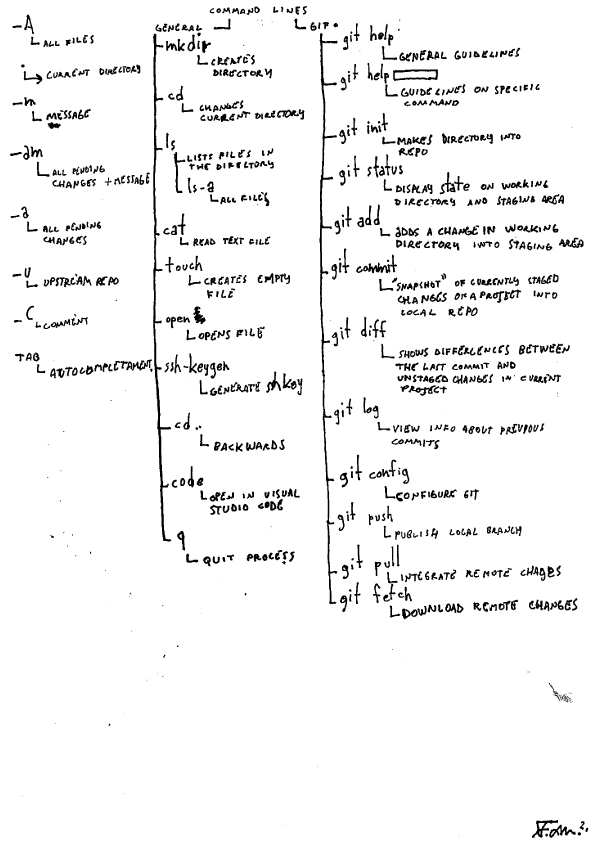 COMMAND LINES
-A
ALL FILES
.
CURRENT DIRECTORY
-m
MESSAGE
-am
ALL PENDING
CHANGES + MESSAGE
-a
ALL PENDING
CHANGES
-U
UPSTREAM REPO
-C
COMMENT
TAB
AUTOCOMPLETAMENT
GENERAL
mkdir
CREATES
DIRECTORY
cd
CHANGES
CURRENT DIRECTORY
ls
LISTS FILES IN
THE DIRECTORY
ls-a
ALL FILES
cat
READ TEXT FILE
touch
CREATES EMPTY
FILE
open
OPENS FILE
ssh-keygen
GENERATE sshkey
cd..
BACKWARDS
code
OPEN IN VISUAL
STUDIO CODE
q
QUIT PROCESS
git help
GENERAL GUIDELINES
git help
GUIDELINES ON SPECIFIC
COMMAND
git init
MAKES DIRECTORY INTO
REPO
git status
DISPLAY state ON WORKING
DIRECTORY AND STAGING AREA
git add
ADDS A CHANGE IN WORKING
DIRECTORY INTO STAGING AREA
git commit
"SNAPSHOT" OF CURRENTLY STAGED
CHANGES ON A PROJECT INTO
LOCAL REPO
git diff
SHOWS DIFFERENCES BETWEEN
THE LAST COMMIT AND
UNSTAGED CHANGES IN CURRENT
PROJECT
git log
VIEW INFO ABOUT PREVPOUS
COMMITS
git config
CONFIGURE GIT
git push
PUBLISH LOCAL BRANCH
git pull
INTEGRATE REMOTE
git fetch
DOWNLOAD REMOTE CHANGES